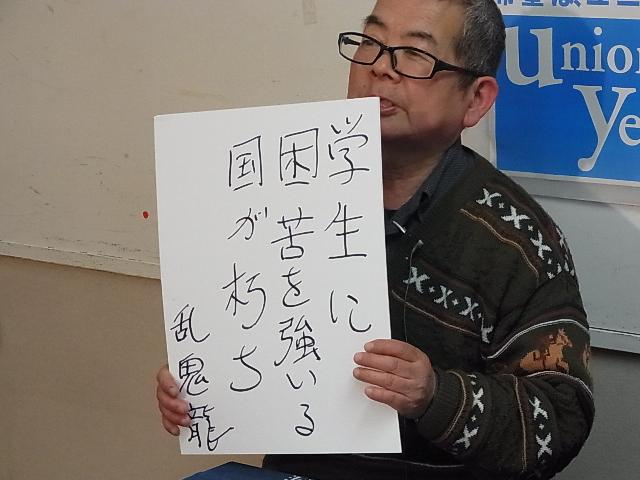 学生に
困苦を強いる
国が朽ち
乱鬼龍
union
Ye